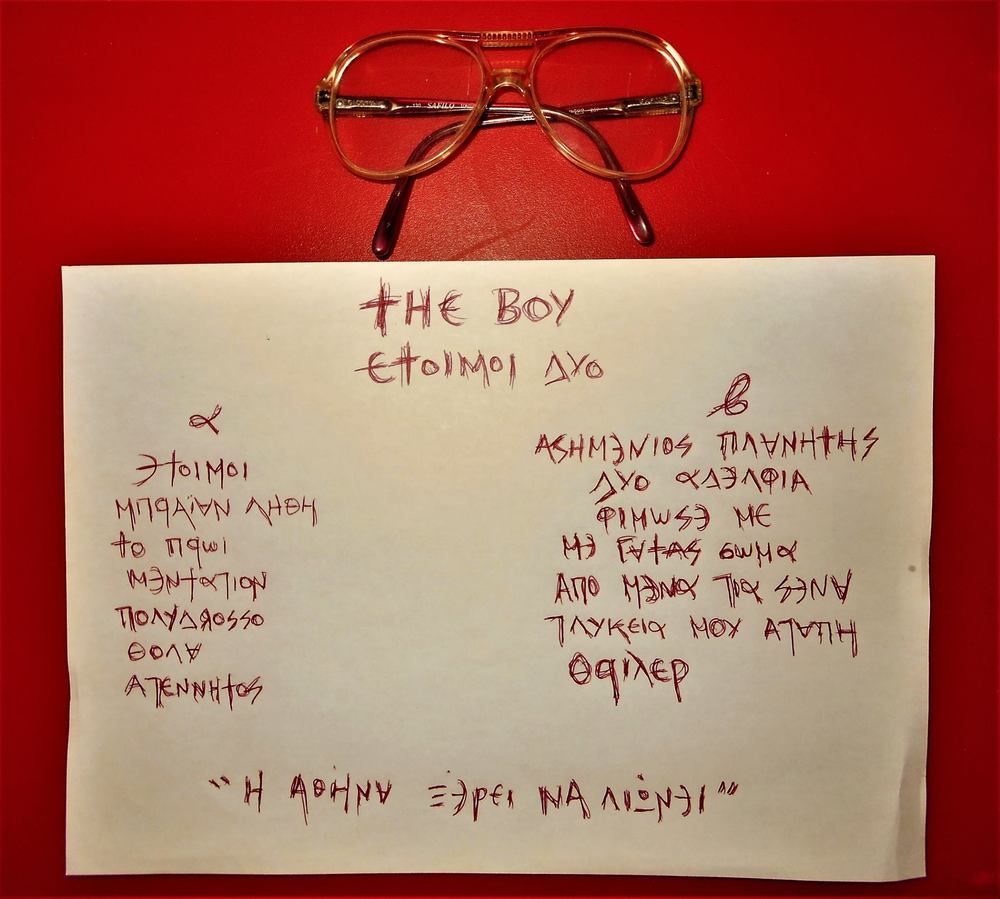 SAFILO
THE BOY
ΕΤΟΙΜΟΙ ΔΥΟ
α
ΕΤΟΙΜΟΙ
ΜΠΡΑΪΑΝ ΛΗΘΗ
ΤΟ ΠΡωΙ
ΜΕΝΤαΓΙΟΝ
ΠΟΛΥΔΡΟΣΣΟ
ΘΟΛΑ
ΑΓΕΝΝΗΤΟΣ
β
ΑΣΗΜΕΝΙΟΣ ΠΛΑΝΗΤΗΣ
ΔΥΟ αΔΕΛΦΙΑ
ΦΙΜωΣΕ ΜΕ
ΜΕ ΓΑΤΑΣ ΣωΜα
ΑΠΟ ΜΕΝα ΓΙα ΣΕΝΑ
ΓΛΥΚΕΙα ΜΟΥ ΑΓΑΠΗ
ΘΡΙλΕΡ
"Η ΑΘΗΝΑ ΞΕΡΕΙ ΝΑ ΛΙΩΝΕΙ"